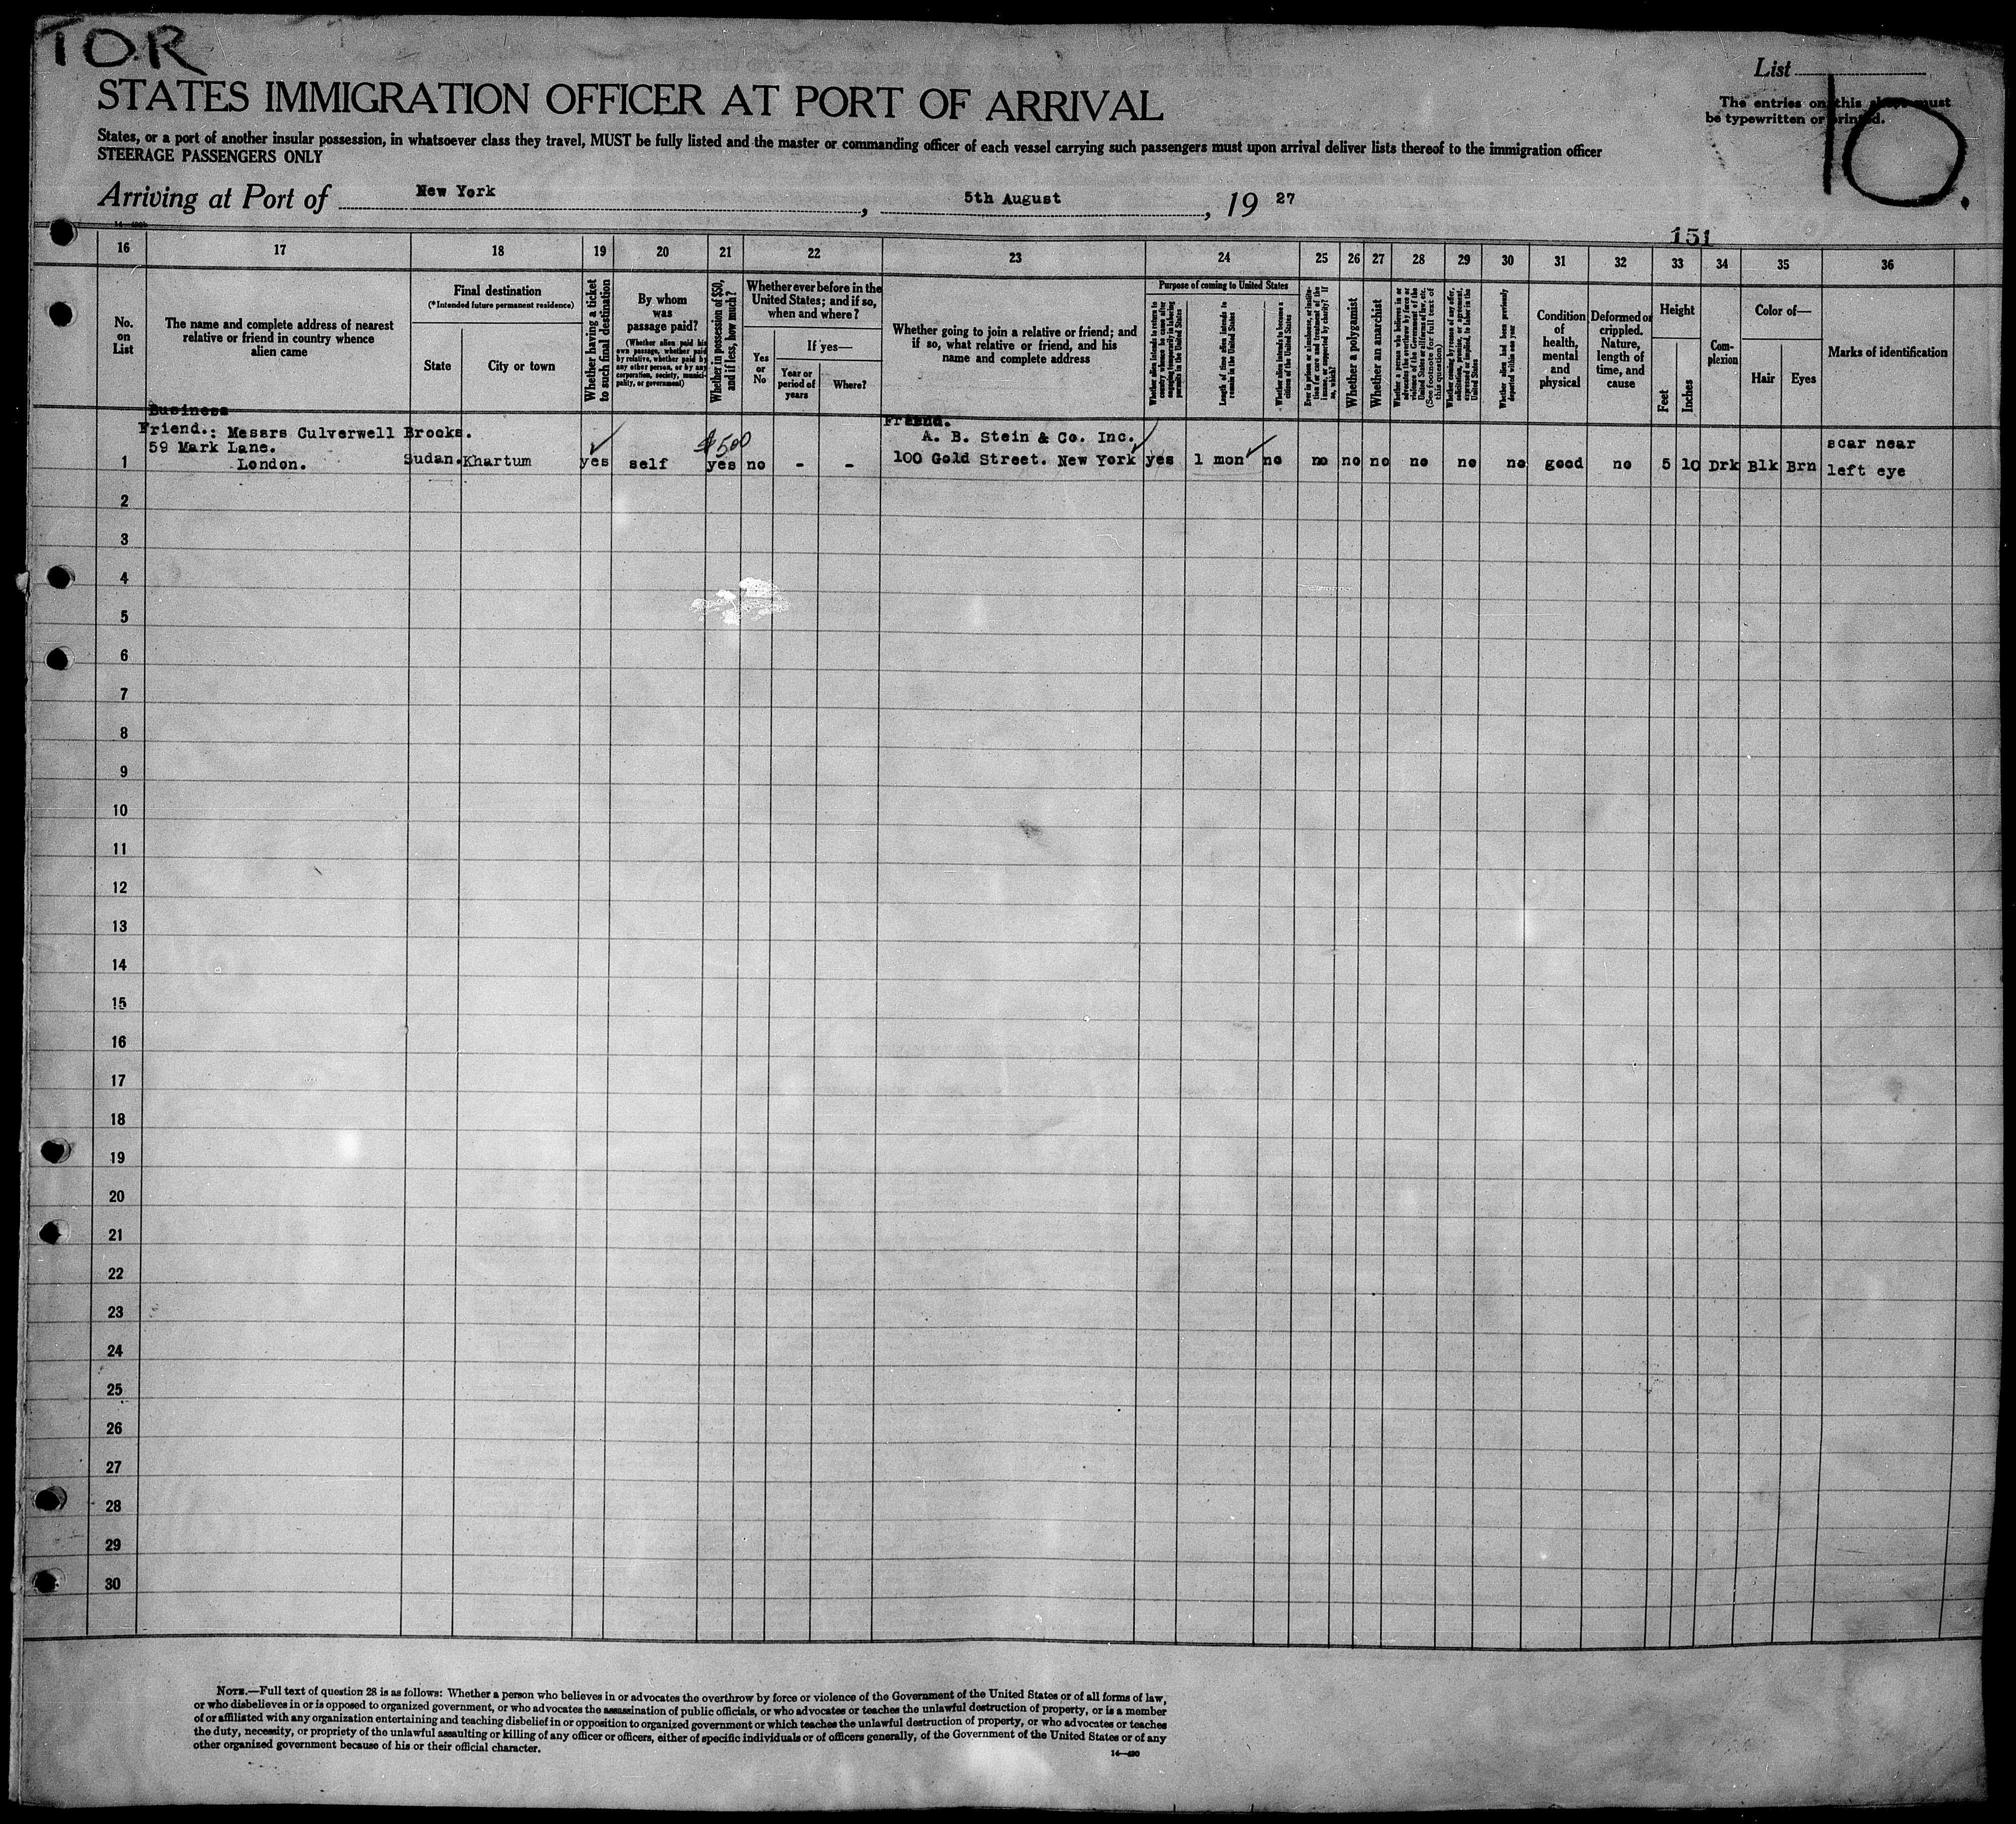 TOR
STATES IMMIGRATION OFFICER AT PORT OF ARRIVAL
List
The entries on this sheet must
be typewritten or printed.
10.
States, or a port of another insular possession, in whatsoever class they travel, MUST be fully listed and the master or commanding officer of each vessel carrying such passengers must upon arrival deliver lists thereof to the immigration officer
STEERAGE PASSENGERS ONLY
Arriving at Port of New York, 5th August, 19 27
151
16 17 18 19 20 21 22 23 24 25 26 27 28 29 30 31 32 33 34 35 36
No. on List
The name and complete address of nearest relative or friend in country whence alien came
Final destination
(*Intended future permanent residence)
State
City or town
Whether having a ticket to such final destination
By whom was passage paid?
(Whether alien paid his own passage, whether paid by relative, whether paid by any other person, or by any corporation, society, municipality, or government)
Whether in possession of $50, and if less, how much?
Whether ever before in the United States; and if so, when and where?
Yes or No
If yes—
Year or period of years
Where?
Whether going to join a relative or friend; and if so, what relative or friend, and his name and complete address
Purpose of coming to United States
Whether alien intends to return to country whence he came after engaging temporarily in laboring pursuits in the United States
Length of time alien intends to remain in the United States
Whether alien intends to become a citizen of the United States
Ever in prison or almshouse, or institution for care and treatment of the insane, or supported by charity? If so, which?
Whether a polygamist
Whether an anarchist
Whether a person who believes in or advocates the overthrow by force or violence of the Government of the United States or all forms of law, etc. (See footnote for full text of this question)
Whether coming by reason of any offer, solicitation, promise, or agreement, expressed or implied, to labor in the United States
Whether alien had been previously deported within one year
Condition of health, mental and physical
Deformed or crippled. Nature, length of time, and cause
Height
Feet
Inches
Complexion
Color of—
Hair
Eyes
Marks of identification
Business
Friend.: Messrs Culverwell Brooks.
59 Mark Lane.
London.
1 Sudan. Khartum yes self $500 yes no - -
Friend.
A. B. Stein & Co. Inc.
100 Gold Street. New York yes 1 mon no no no no no no no good no 5 10 Drk Blk Brn
scar near
left eye
2
3
4
5
6
7
8
9
10
11
12
13
14
15
16
17
18
19
20
21
22
23
24
25
26
27
28
29
30
NOTE.—Full text of question 28 is as follows: Whether a person who believes in or advocates the overthrow by force or violence of the Government of the United States or of all forms of law,
or who disbelieves in or is opposed to organized government, or who advocates the assassination of public officials, or who advocates or teaches the unlawful destruction of property, or is a member
of or affiliated with any organization entertaining and teaching disbelief in or opposition to organized government or which teaches the unlawful destruction of property, or who advocates or teaches
the duty, necessity, or propriety of the unlawful assaulting or killing of any officer or officers, either of specific individuals or of officers generally, of the Government of the United States or of any
other organized government because of his or their official character.
14—490